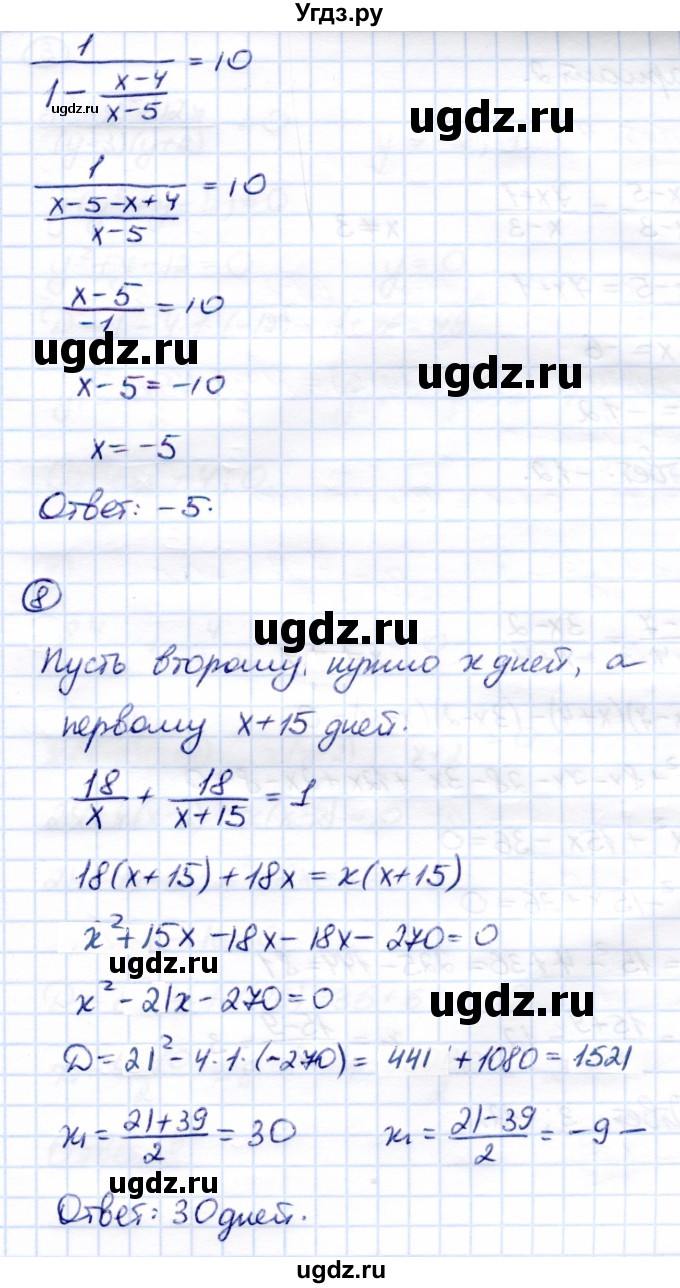 Угдз.ру
1/(1 − (x−4)/(x−5)) = 10
ugdz.ru
ugdz.ru
1/((x−5−x+4)/(x−5)) = 10
(x−5)/−1 = 10
ugdz.ru
ugdz.ru
x−5 = −10
x = −5
Ответ: −5.
8
ugdz.ru
Пусть второму нужно x дней, а
первому x+15 дней.
18/x + 18/(x+15) = 1
18(x+15)+18x = x(x+15)
x²+15x−18x−18x−270=0
ugdz.ru
x²−21x−270=0
ugdz.ru
D=21²−4·1·(−270)= 441+1080=1521
x₁ = (21+39)/2 = 30 x₁ = (21−39)/2 = −9 −
ugdz.ru
Ответ: 30 дней.
ugdz.ru